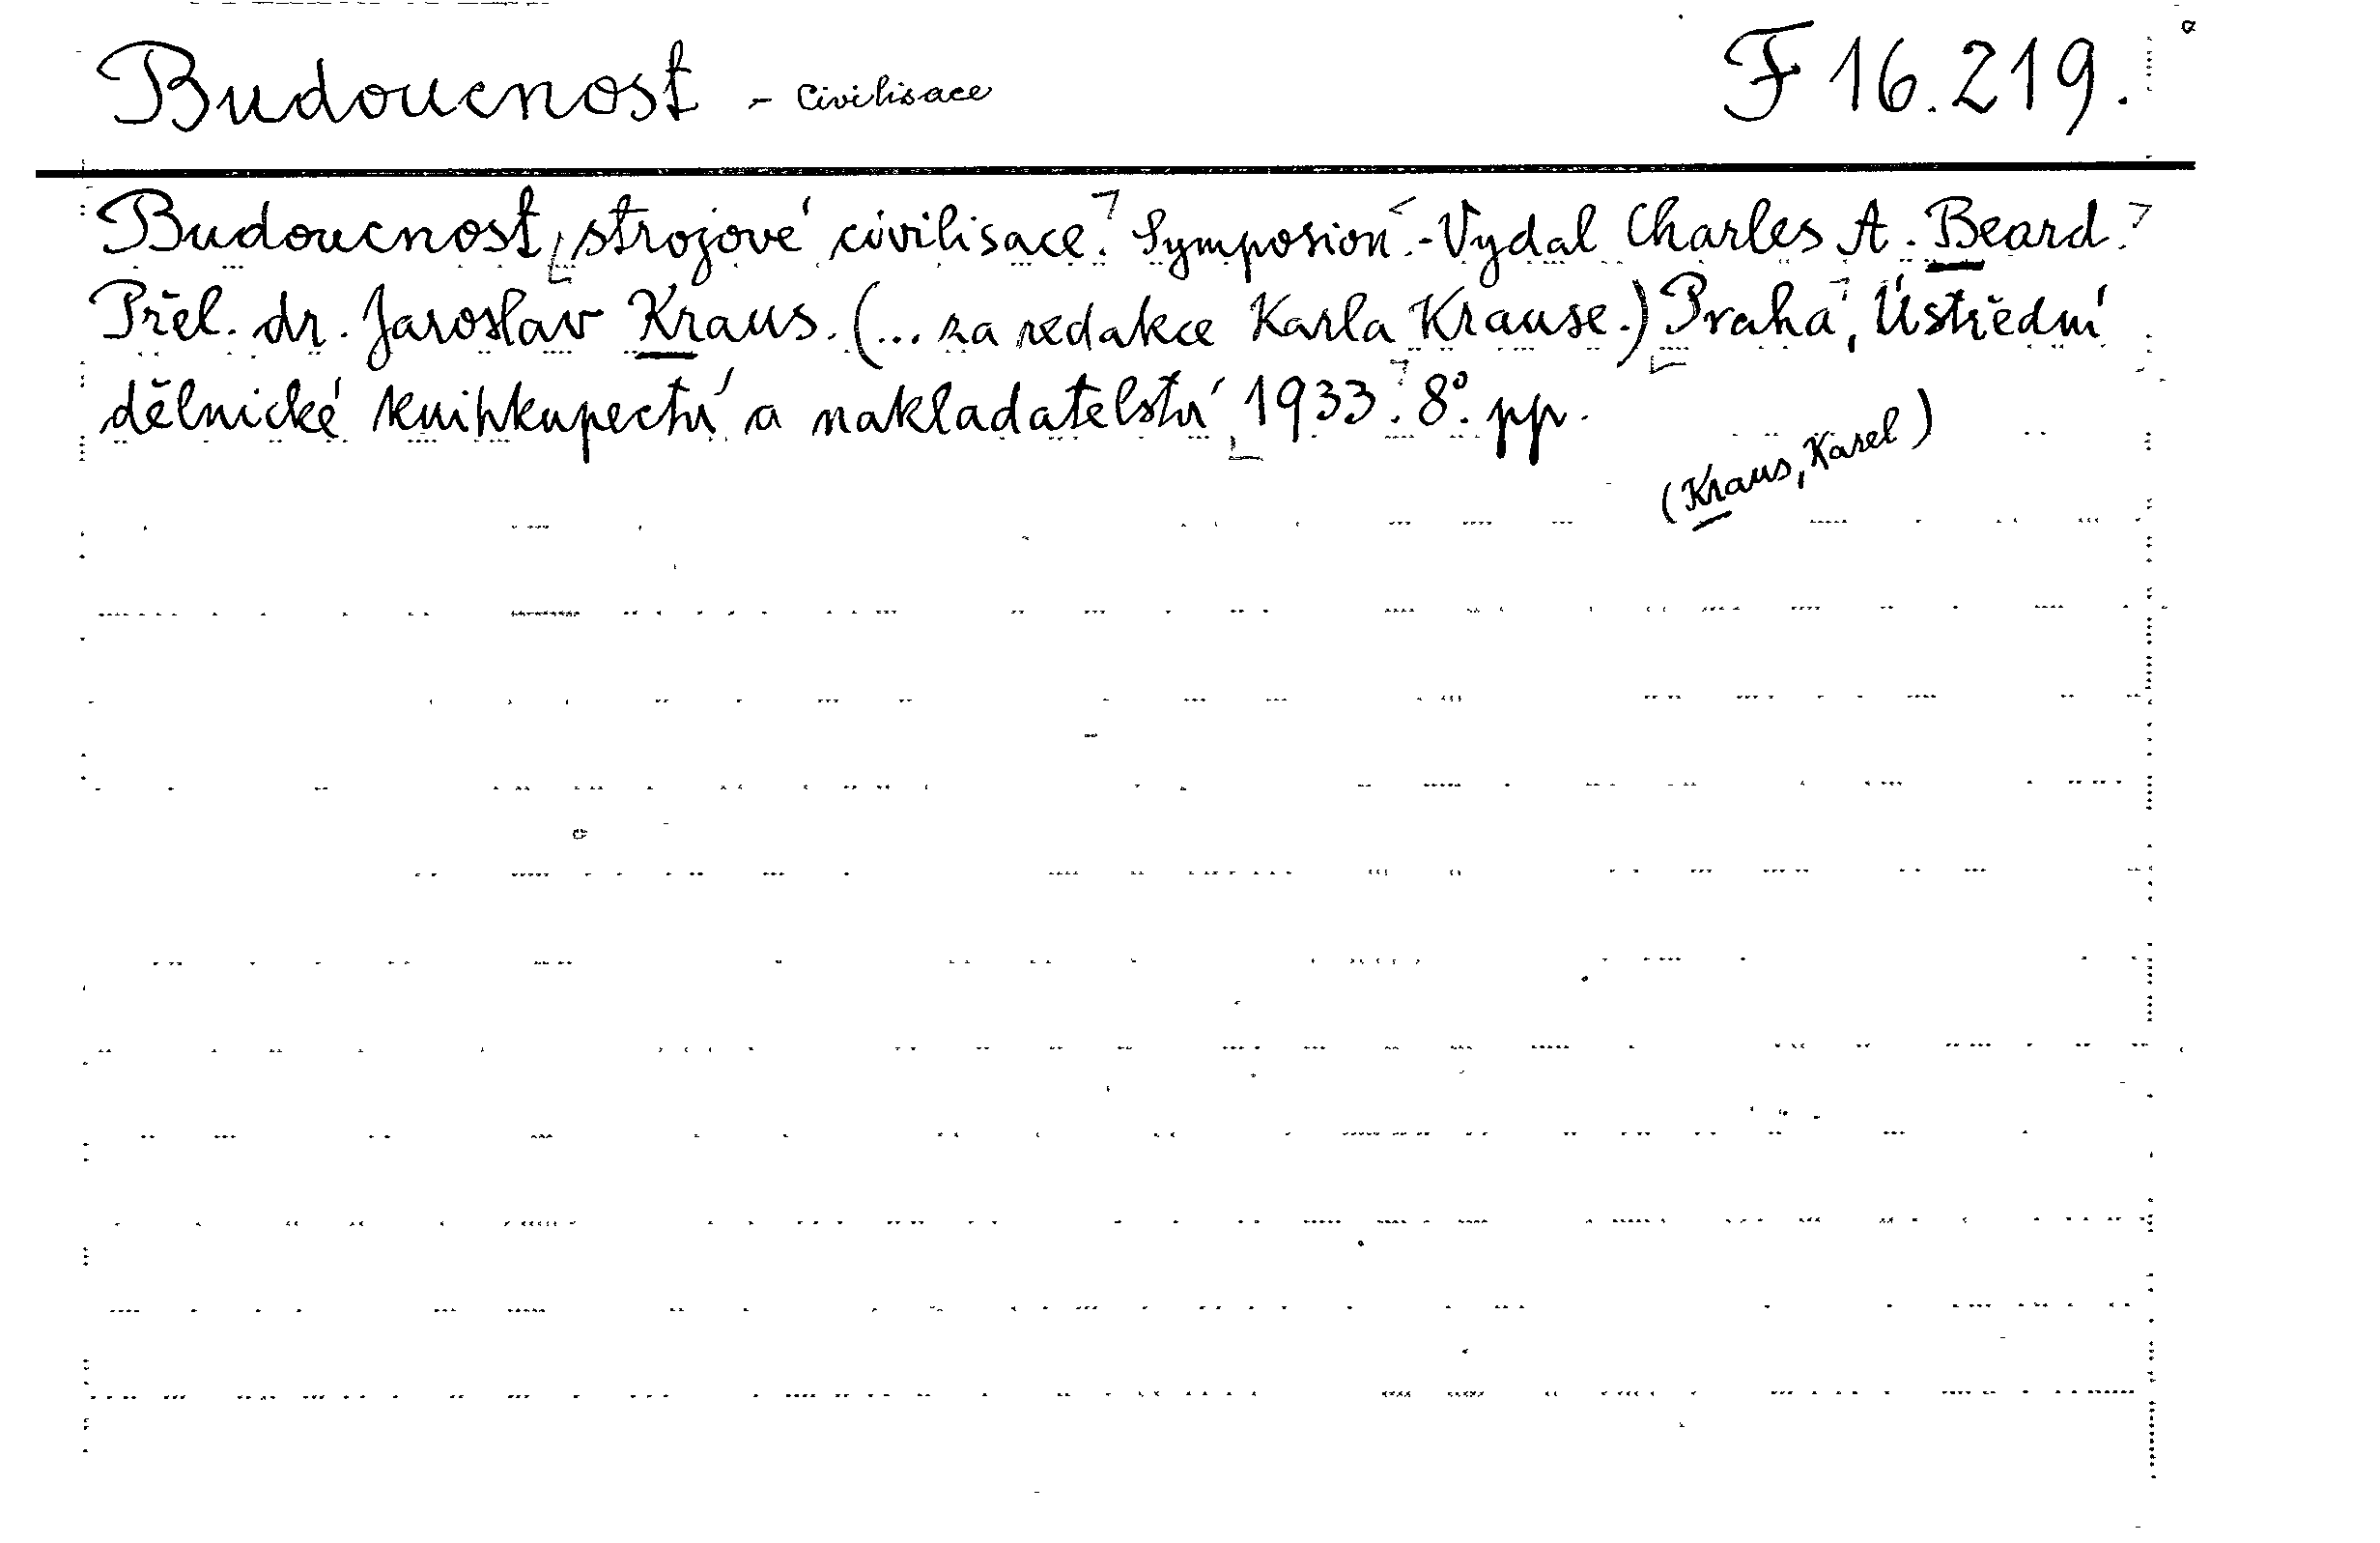 Budoucnost - civilisace F 16.219.
Budoucnost strojové civilisace. Symposion. - Vydal Charles A. Beard.
Přel. dr. Jaroslav Kraus. (... za redakce Karla Krause.) Praha, Ústřední
dělnické knihkupectví a nakladatelství 1933. 8°. pp.
(Kraus, Karel)